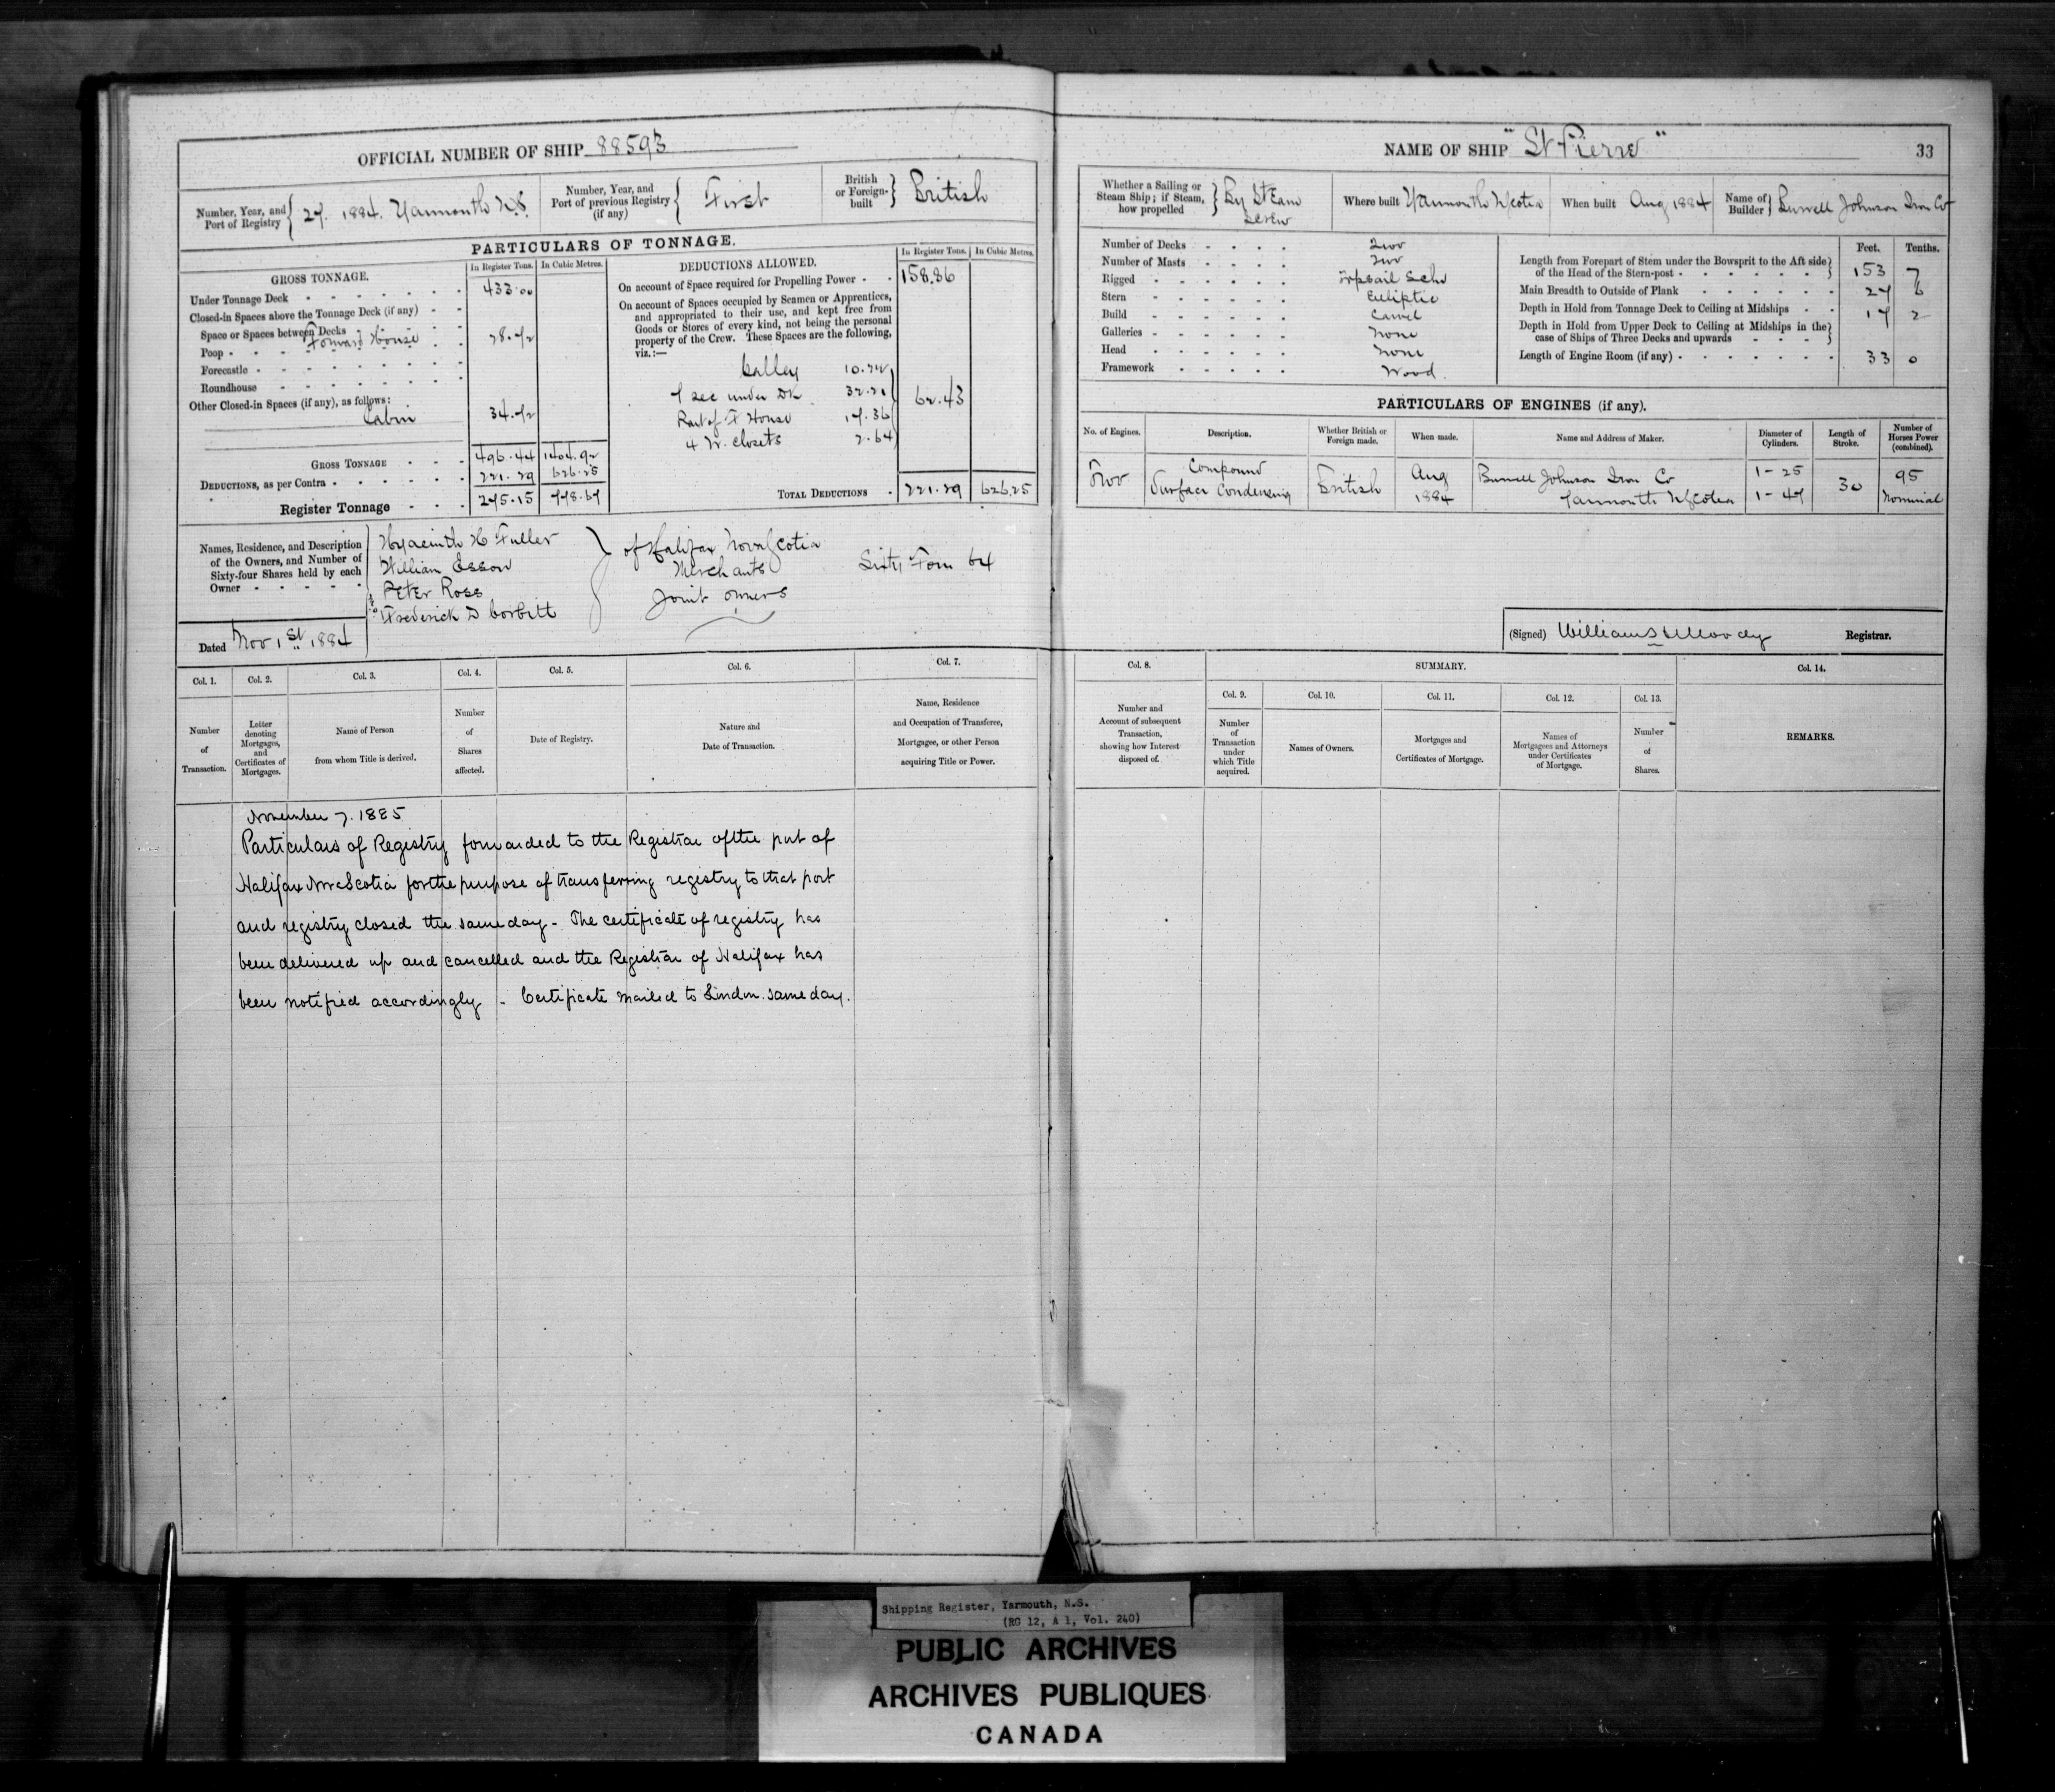 OFFICIAL NUMBER OF SHIP 88593
Number, Year, and Port of Registry { 27. 1884. Yarmouth N.S.
Number, Year, and Port of previous Registry (if any) { First
British or Foreign-built } British
PARTICULARS OF TONNAGE.
GROSS TONNAGE.
In Register Tons. In Cubic Metres.
Under Tonnage Deck 433.00
Closed-in Spaces above the Tonnage Deck (if any)
Space or Spaces between Decks
Poop Forward House
Forecastle
Roundhouse
Other Closed-in Spaces (if any), as follows:
Cabin
GROSS TONNAGE 496.44 1404.92
DEDUCTIONS, as per Contra 221.29 626.25
Register Tonnage 275.15 778.67
DEDUCTIONS ALLOWED.
In Register Tons. In Cubic Metres.
On account of Space required for Propelling Power 158.86
On account of Spaces occupied by Seamen or Apprentices,
and appropriated to their use, and kept free from
Goods or Stores of every kind, not being the personal
property of the Crew. These Spaces are the following,
viz.:—
Galley
sec under Dk 62.43
Part of F House 17.36
4 W. Closets 2.64
TOTAL DEDUCTIONS 221.29 626.25
Names, Residence, and Description
of the Owners, and Number of
Sixty-four Shares held by each
Owner
Hyacinth H Fuller
William Esson
Peter Ross
& Frederick D Corbitt
of Halifax Nova Scotia
Merchants
Joint owners
Sixty Four 64
Dated Nov 1st 1884
Col. 1. Col. 2. Col. 3. Col. 4. Col. 5. Col. 6. Col. 7.
Number of Transaction.
Letter denoting Mortgages, and Certificates of Mortgages.
Name of Person from whom Title is derived.
Number of Shares affected.
Date of Registry.
Nature and Date of Transaction.
Name, Residence and Occupation of Transferee, Mortgagee, or other Person acquiring Title or Power.
November 7. 1885
Particulars of Registry forwarded to the Registrar of the port of
Halifax Nova Scotia for the purpose of transferring registry to that port
and registry closed the same day - The certificate of registry has
been delivered up and cancelled and the Registrar of Halifax has
been notified accordingly - Certificate mailed to London same day.
NAME OF SHIP "St Pierre"
33
Whether a Sailing or Steam Ship; if Steam, how propelled } By Steam Screw
Where built Yarmouth N Scotia
When built Aug 1884
Name of Builder } Burrell Johnson Iron Co
Number of Decks Two
Number of Masts Two
Rigged Topsail Schr
Stern Elliptic
Build Carvel
Galleries None
Head None
Framework Wood.
Feet. Tenths.
Length from Forepart of Stem under the Bowsprit to the Aft side of the Head of the Stern-post 153 7
Main Breadth to Outside of Plank 27 6
Depth in Hold from Tonnage Deck to Ceiling at Midships 17 2
Depth in Hold from Upper Deck to Ceiling at Midships in the case of Ships of Three Decks and upwards
Length of Engine Room (if any) 33 0
PARTICULARS OF ENGINES (if any).
No. of Engines. Description. Whether British or Foreign made. When made. Name and Address of Maker. Diameter of Cylinders. Length of Stroke. Number of Horses Power (combined).
Two Compound Surface Condensing British Aug 1884 Burrell Johnson Iron Co Yarmouth N Scotia 1 - 25 1 - 47 30 95 Nominal
(Signed) William H Moody Registrar.
Col. 8. SUMMARY. Col. 14.
Col. 9. Col. 10. Col. 11. Col. 12. Col. 13.
Number and Account of subsequent Transaction, showing how Interest disposed of.
Number of Transaction under which Title acquired.
Names of Owners.
Mortgages and Certificates of Mortgage.
Names of Mortgagees and Attorneys under Certificates of Mortgage.
Number of Shares.
REMARKS.
Shipping Register, Yarmouth, N.S.
(RG 12, A 1, Vol. 240)
PUBLIC ARCHIVES
ARCHIVES PUBLIQUES
CANADA